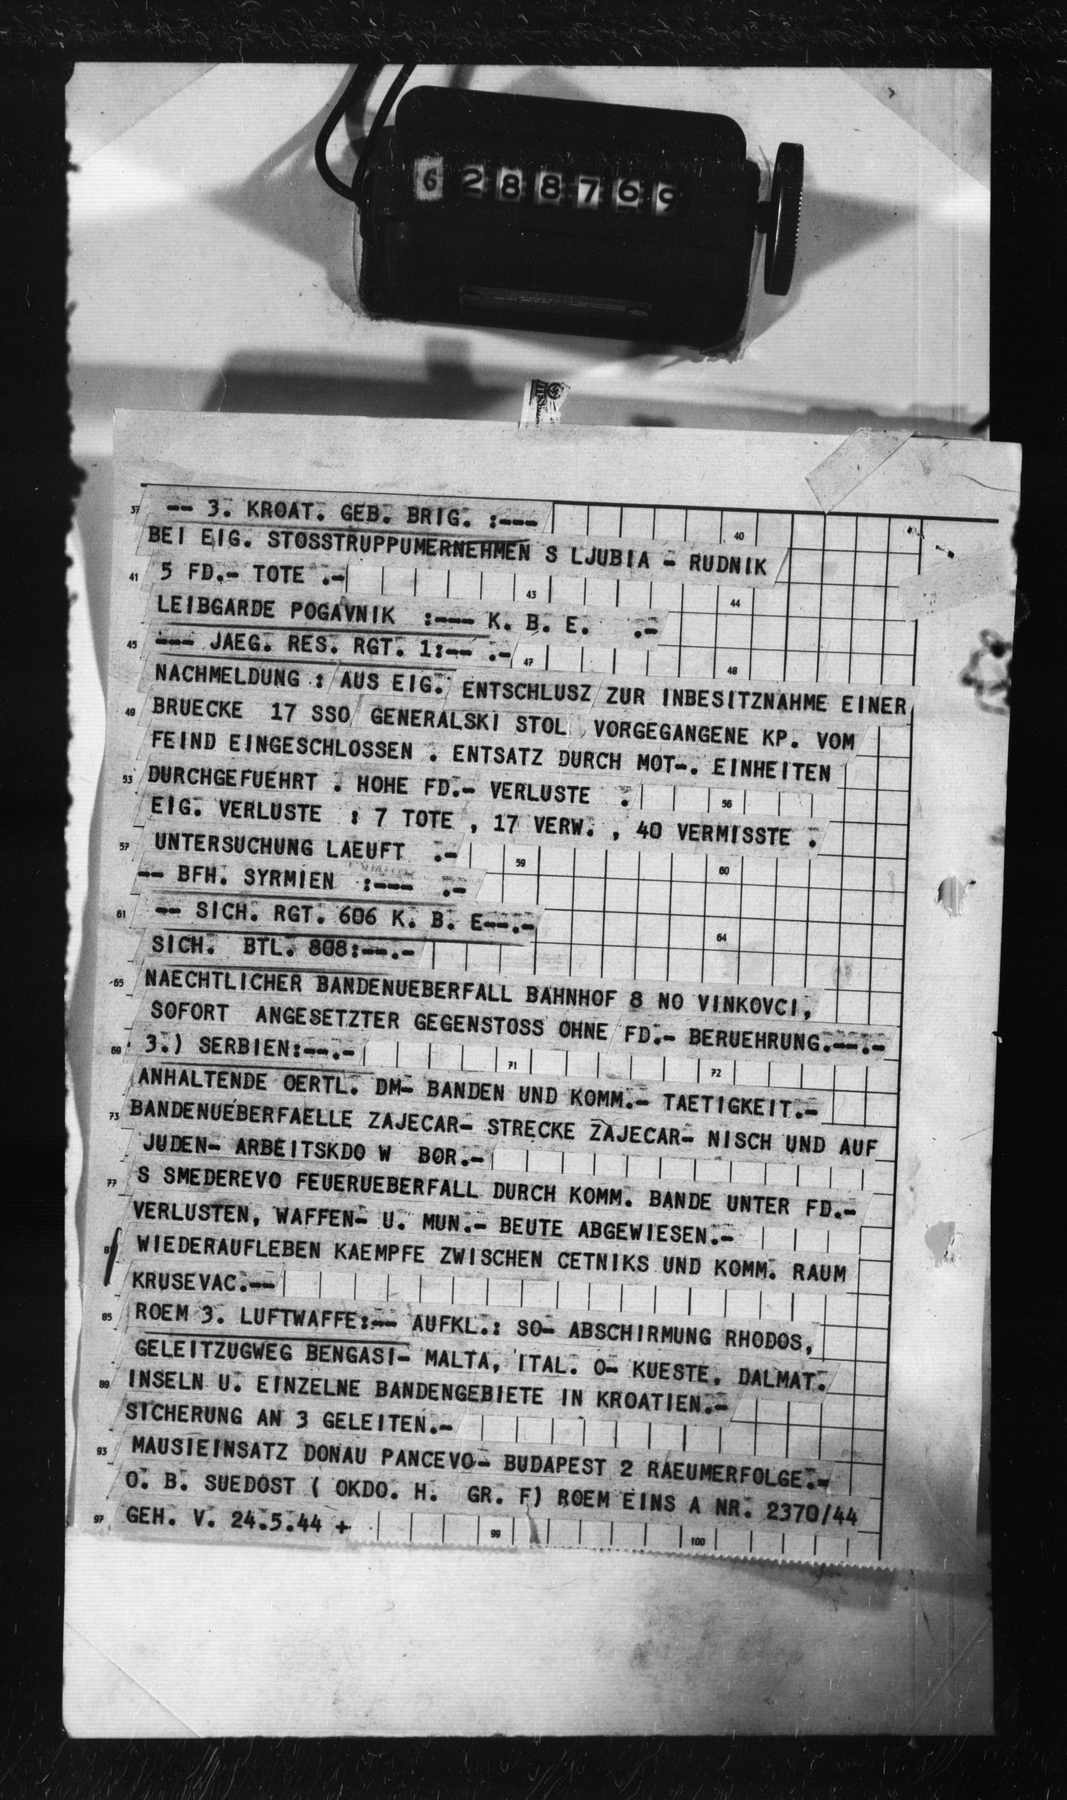 6288769
37 -- 3. KROAT. GEB. BRIG. :---
40
BEI EIG. STOSSTRUPPUMERNEHMEN S LJUBIA - RUDNIK
41 5 FD.- TOTE .-
43 44
LEIBGARDE POGAVNIK :--- K. B. E. .-
45 --- JAEG. RES. RGT. 1:-- .-
47 48
NACHMELDUNG : AUS EIG. ENTSCHLUSZ ZUR INBESITZNAHME EINER
49 BRUECKE 17 SSO GENERALSKI STOL VORGEGANGENE KP. VOM
FEIND EINGESCHLOSSEN . ENTSATZ DURCH MOT-. EINHEITEN
53 DURCHGEFUEHRT . HOHE FD.- VERLUSTE .
56
EIG. VERLUSTE : 7 TOTE , 17 VERW. , 40 VERMISSTE .
57 UNTERSUCHUNG LAEUFT .-
59 60
-- BFH. SYRMIEN :--- .-
61 -- SICH. RGT. 606 K. B. E--.-
64
SICH. BTL. 808:--.-
65 NAECHTLICHER BANDENUEBERFALL BAHNHOF 8 NO VINKOVCI,
SOFORT ANGESETZTER GEGENSTOSS OHNE FD.- BERUEHRUNG.--.-
69 3.) SERBIEN:--.-
71 72
ANHALTENDE OERTL. DM- BANDEN UND KOMM.- TAETIGKEIT.-
73 BANDENUEBERFAELLE ZAJECAR- STRECKE ZAJECAR- NISCH UND AUF
JUDEN- ARBEITSKDO W BOR.-
77 S SMEDEREVO FEUERUEBERFALL DURCH KOMM. BANDE UNTER FD.-
VERLUSTEN, WAFFEN- U. MUN.- BEUTE ABGEWIESEN.-
81 WIEDERAUFLEBEN KAEMPFE ZWISCHEN CETNIKS UND KOMM. RAUM
KRUSEVAC.--
85 ROEM 3. LUFTWAFFE:-- AUFKL.: SO- ABSCHIRMUNG RHODOS,
GELEITZUGWEG BENGASI- MALTA, ITAL. O- KUESTE, DALMAT.
89 INSELN U. EINZELNE BANDENGEBIETE IN KROATIEN.-
SICHERUNG AN 3 GELEITEN.-
93 MAUSIEINSATZ DONAU PANCEVO- BUDAPEST 2 RAEUMERFOLGE.-
O. B. SUEDOST ( OKDO. H. GR. F) ROEM EINS A NR. 2370/44
97 GEH. V. 24.5.44 +
99 100